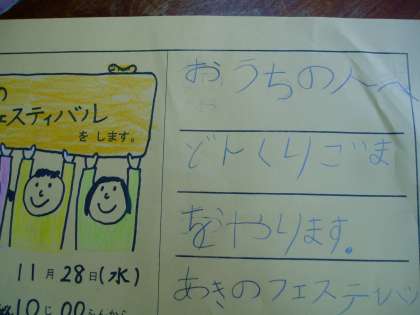 の
フェスティバル
をします。
11月28日(水)
10じ00
おうちの人へ
どんくりごま
をやります。
あきのフェスティバ